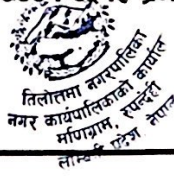 तिलोत्तमा नगरपालिका
नगर कार्यपालिकाको कार्यालय
मणिग्राम, रुपन्देही
लुम्बिनी प्रदेश नेपाल